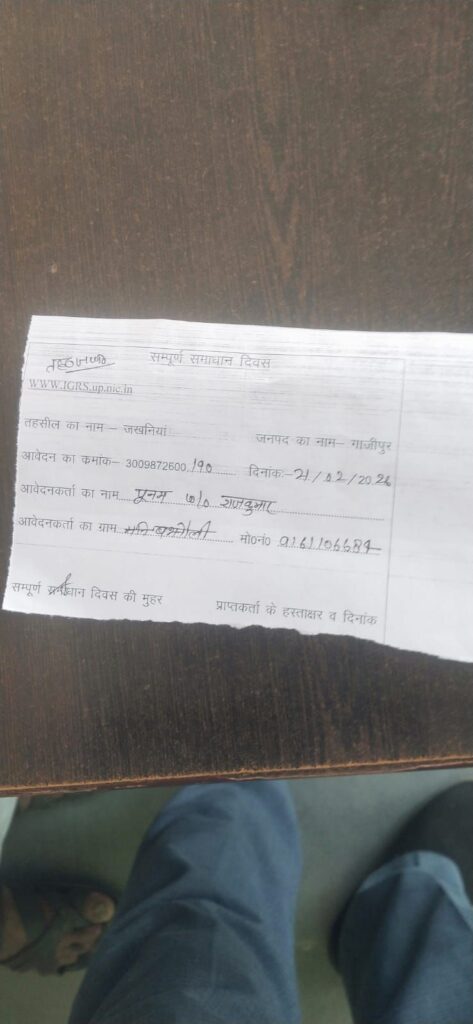 सम्पूर्ण समाधान दिवस
WWW.IGRS.up.nic.in
तहसील का नाम – जखनियां जनपद का नाम– गाजीपुर
आवेदन का कमांक– 3009872600190 दिनांक:– 21/02/2026
आवेदनकर्ता का नाम पूनम w/o राजकुमार
आवेदनकर्ता का ग्राम मो0नं0
सम्पूर्ण समाधान दिवस की मुहर प्राप्तकर्ता के हस्ताक्षर व दिनांक